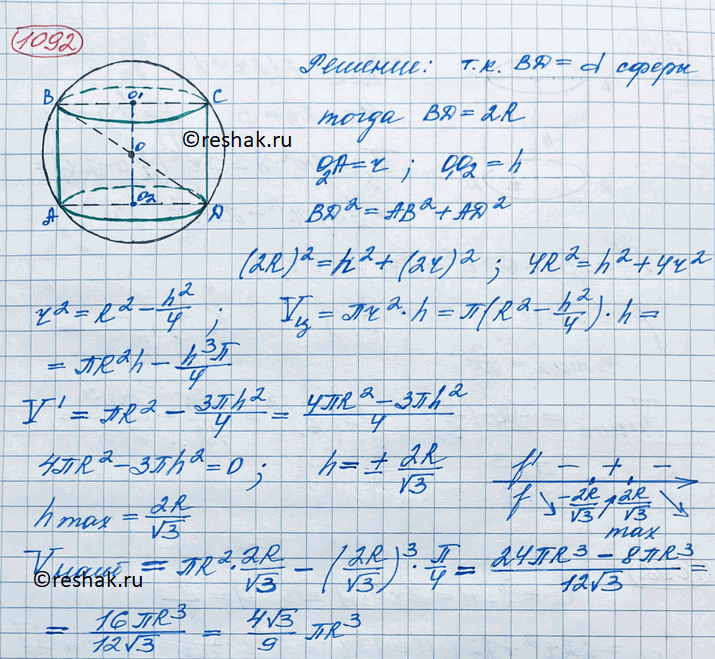 1092
Решение: т.к. BD = d сферы
B O1 C
©reshak.ru
тогда BD = 2R
O
O₂A = r ; O₁O₂ = h
A O2 D
BD² = AB² + AD²
(2R)² = h² + (2r)² ; 4R² = h² + 4r²
r² = R² − h²/4 ; Vц = πr² · h = π(R² − h²/4) · h =
= πR²h − h³π/4
V' = πR² − 3πh²/4 = (4πR² − 3πh²)/4
4πR² − 3πh² = 0 ; h = ± 2R/√3
f' − + −
f ↘ −2R/√3 ↗ 2R/√3 ↘
h max = 2R/√3
max
Vнаиб = πR² · 2R/√3 − (2R/√3)³ · π/4 = (24πR³ − 8πR³)/12√3 =
©reshak.ru
= 16πR³/12√3 = 4√3/9 πR³